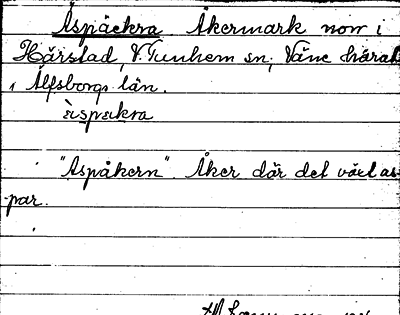 Aspåckra Åkermark norr i
Hårstad, V. Tunhem sn, Väne härad
i Älfsborgs län.
àspkra
"Aspåkern". Åker där det växt as-
par.